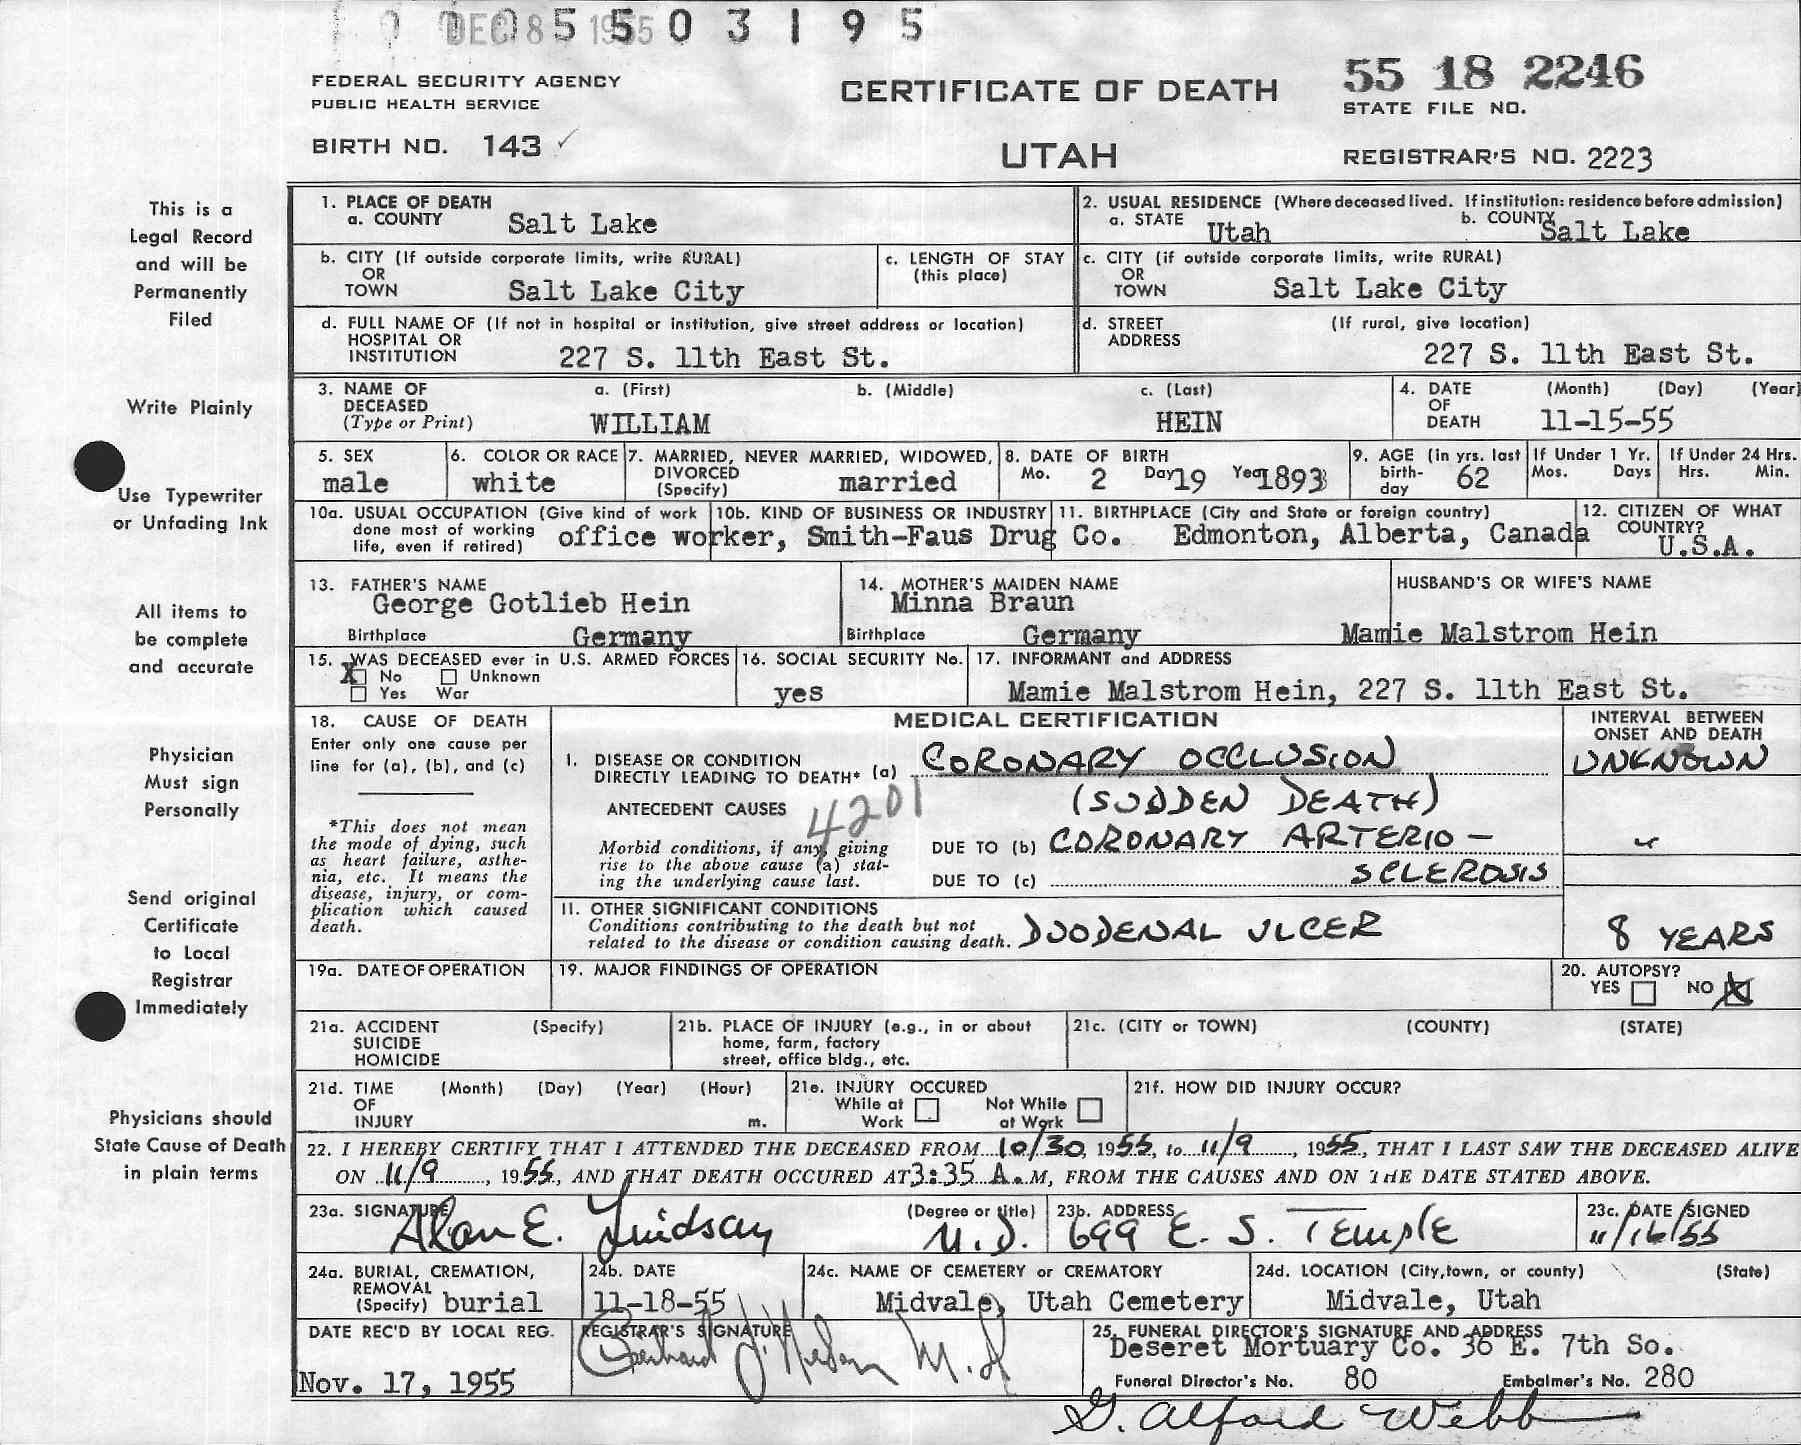 0005503195
DEC 8 1955
FEDERAL SECURITY AGENCY
PUBLIC HEALTH SERVICE
BIRTH NO. 143 ✓
CERTIFICATE OF DEATH
UTAH
55 18 2246
STATE FILE NO.
REGISTRAR'S NO. 2223
This is a
Legal Record
and will be
Permanently
Filed
Write Plainly
Use Typewriter
or Unfading Ink
All items to
be complete
and accurate
Physician
Must sign
Personally
Send original
Certificate
to Local
Registrar
Immediately
Physicians should
State Cause of Death
in plain terms
1. PLACE OF DEATH
a. COUNTY Salt Lake
2. USUAL RESIDENCE (Where deceased lived. If institution: residence before admission)
a. STATE Utah b. COUNTY Salt Lake
b. CITY (If outside corporate limits, write RURAL)
OR
TOWN Salt Lake City
c. LENGTH OF STAY
(this place)
c. CITY (if outside corporate limits, write RURAL)
OR
TOWN Salt Lake City
d. FULL NAME OF (If not in hospital or institution, give street address or location)
HOSPITAL OR
INSTITUTION 227 S. 11th East St.
d. STREET (If rural, give location)
ADDRESS
227 S. 11th East St.
3. NAME OF a. (First) b. (Middle) c. (Last)
DECEASED
(Type or Print) WILLIAM HEIN
4. DATE (Month) (Day) (Year)
OF
DEATH 11-15-55
5. SEX
male
6. COLOR OR RACE
white
7. MARRIED, NEVER MARRIED, WIDOWED,
DIVORCED
(Specify) married
8. DATE OF BIRTH
Mo. 2 Day 19 Year 1893
9. AGE (in yrs. last
birth-
day 62
If Under 1 Yr.
Mos. Days
If Under 24 Hrs.
Hrs. Min.
10a. USUAL OCCUPATION (Give kind of work
done most of working
life, even if retired) office worker,
10b. KIND OF BUSINESS OR INDUSTRY
Smith-Faus Drug Co.
11. BIRTHPLACE (City and State or foreign country)
Edmonton, Alberta, Canada
12. CITIZEN OF WHAT
COUNTRY?
U.S.A.
13. FATHER'S NAME
George Gotlieb Hein
Birthplace Germany
14. MOTHER'S MAIDEN NAME
Minna Braun
Birthplace Germany
HUSBAND'S OR WIFE'S NAME
Mamie Malstrom Hein
15. WAS DECEASED ever in U.S. ARMED FORCES
X No Unknown
Yes War
16. SOCIAL SECURITY No.
yes
17. INFORMANT and ADDRESS
Mamie Malstrom Hein, 227 S. 11th East St.
18. CAUSE OF DEATH
Enter only one cause per
line for (a), (b), and (c)
*This does not mean
the mode of dying, such
as heart failure, asthe-
nia, etc. It means the
disease, injury, or com-
plication which caused
death.
MEDICAL CERTIFICATION
INTERVAL BETWEEN
ONSET AND DEATH
I. DISEASE OR CONDITION
DIRECTLY LEADING TO DEATH* (a) CORONARY OCCLUSION UNKNOWN
ANTECEDENT CAUSES 4201 (SUDDEN DEATH)
Morbid conditions, if any, giving
rise to the above cause (a) stat-
ing the underlying cause last.
DUE TO (b) CORONARY ARTERIO- "
DUE TO (c) SCLEROSIS
II. OTHER SIGNIFICANT CONDITIONS
Conditions contributing to the death but not
related to the disease or condition causing death. DUODENAL ULCER 8 YEARS
19a. DATE OF OPERATION
19. MAJOR FINDINGS OF OPERATION
20. AUTOPSY?
YES NO X
21a. ACCIDENT (Specify)
SUICIDE
HOMICIDE
21b. PLACE OF INJURY (e.g., in or about
home, farm, factory
street, office bldg., etc.
21c. (CITY or TOWN) (COUNTY) (STATE)
21d. TIME (Month) (Day) (Year) (Hour)
OF
INJURY m.
21e. INJURY OCCURED
While at Work Not While at Work
21f. HOW DID INJURY OCCUR?
22. I HEREBY CERTIFY THAT I ATTENDED THE DECEASED FROM 10/30, 1955, to 11/9, 1955, THAT I LAST SAW THE DECEASED ALIVE
ON 11/9, 1955, AND THAT DEATH OCCURED AT 3:35 A.M, FROM THE CAUSES AND ON THE DATE STATED ABOVE.
23a. SIGNATURE (Degree or title)
Alan E. Lindsay M.D.
23b. ADDRESS
699 E. S. TEMPLE
23c. DATE SIGNED
11/16/55
24a. BURIAL, CREMATION,
REMOVAL
(Specify) burial
24b. DATE
11-18-55
24c. NAME OF CEMETERY or CREMATORY
Midvale, Utah Cemetery
24d. LOCATION (City, town, or county) (State)
Midvale, Utah
DATE REC'D BY LOCAL REG.
Nov. 17, 1955
REGISTRAR'S SIGNATURE
M.D.
25. FUNERAL DIRECTOR'S SIGNATURE AND ADDRESS
Deseret Mortuary Co. 36 E. 7th So.
Funeral Director's No. 80 Embalmer's No. 280
G. Alford Webb